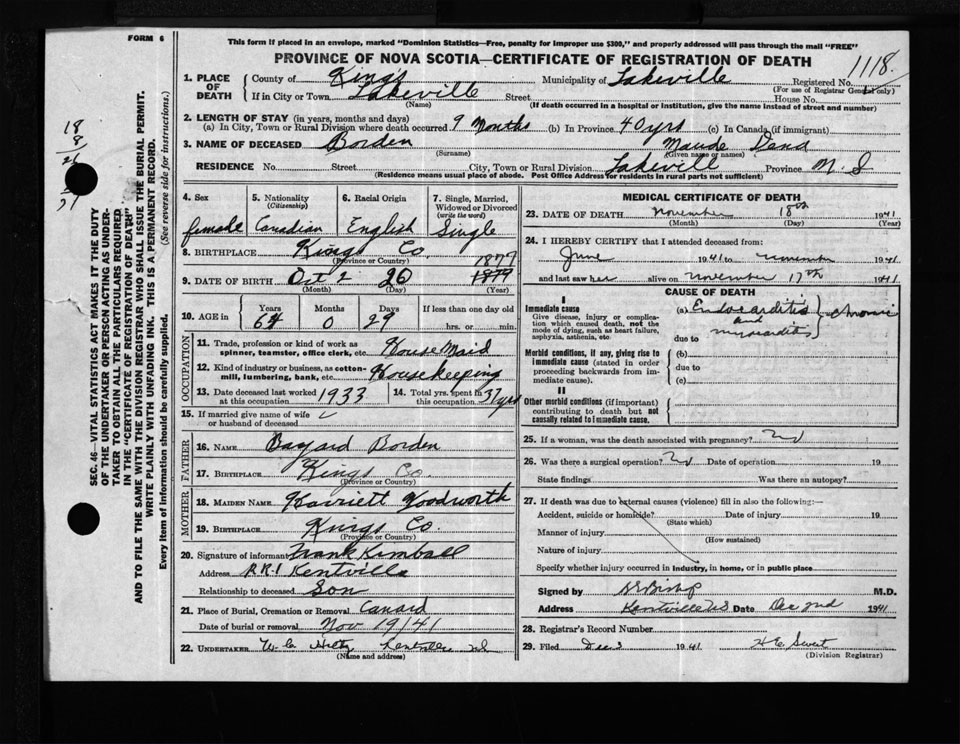 FORM 6
This form if placed in an envelope, marked "Dominion Statistics—Free, penalty for improper use $300," and properly addressed will pass through the mail "FREE"
PROVINCE OF NOVA SCOTIA—CERTIFICATE OF REGISTRATION OF DEATH
1118.
1. PLACE OF DEATH County of Kings Municipality of Lakeville Registered No.
(For use of Registrar General only)
If in City or Town Lakeville Street House No.
(Name) (If death occurred in a hospital or institution, give the name instead of street and number)
2. LENGTH OF STAY (in years, months and days)
(a) In City, Town or Rural Division where death occurred 9 Months (b) In Province 40 yrs (c) In Canada (if immigrant)
3. NAME OF DECEASED Borden Maude Dend
(Surname) (Given name or names)
RESIDENCE No. Street City, Town or Rural Division Lakevill Province N. S
(Residence means usual place of abode. Post Office Address for residents in rural parts not sufficient)
4. Sex 5. Nationality (Citizenship) 6. Racial Origin 7. Single, Married, Widowed or Divorced (write the word)
female Canadian English Single
8. BIRTHPLACE Kings Co.
(Province or Country)
1877
9. DATE OF BIRTH Oct 2 20 1879
(Month) (Day) (Year)
10. AGE in Years Months Days If less than one day old
64 0 29 hrs. or min.
OCCUPATION
11. Trade, profession or kind of work as spinner, teamster, office clerk, etc. House Maid
12. Kind of industry or business, as cotton-mill, lumbering, bank, etc. Housekeeping
13. Date deceased last worked at this occupation 1933 14. Total yrs. spent in this occupation 37 yrs
15. If married give name of wife or husband of deceased
FATHER
16. NAME Bayard Borden
17. BIRTHPLACE Kings Co
(Province or Country)
MOTHER
18. MAIDEN NAME Harriett Woodworth
19. BIRTHPLACE Kings Co.
(Province or Country)
20. Signature of informant Frank Kimball
Address R.R.1 Kentville
Relationship to deceased Son
21. Place of Burial, Cremation or Removal Canard
Date of burial or removal Nov 19/41
22. UNDERTAKER W. C. Hiltz Kentville NS
(Name and address)
MEDICAL CERTIFICATE OF DEATH
23. DATE OF DEATH November 18th 1941
(Month) (Day) (Year)
24. I HEREBY CERTIFY that I attended deceased from:
June 1941 to november 1941
and last saw her alive on November 17th 1941
CAUSE OF DEATH
I
Immediate cause
Give disease, injury or complication which caused death, not the mode of dying, such as heart failure, asphyxia, asthenia, etc.
(a) Endocarditis and myocarditis } chronic
due to
Morbid conditions, if any, giving rise to immediate cause (stated in order proceeding backwards from immediate cause).
(b)
due to
(c)
II
Other morbid conditions (if important) contributing to death but not causally related to immediate cause.
25. If a woman, was the death associated with pregnancy? No
26. Was there a surgical operation? No Date of operation 19
State findings Was there an autopsy?
27. If death was due to external causes (violence) fill in also the following:—
Accident, suicide or homicide? Date of injury 19
(State which)
Manner of injury
(How sustained)
Nature of injury
Specify whether injury occurred in industry, in home, or in public place
Signed by Bishop M.D.
Address Kentville NS Date Dec 2nd 1941
28. Registrar's Record Number
29. Filed Dec 3 1941 H E Sweet
(Division Registrar)
SEC. 46—VITAL STATISTICS ACT MAKES IT THE DUTY
OF THE UNDERTAKER OR PERSON ACTING AS UNDER-
TAKER TO OBTAIN ALL THE PARTICULARS REQUIRED
IN THE "CERTIFICATE OF REGISTRATION OF DEATH"
AND TO FILE THE SAME WITH THE DIVISION REGISTRAR WHO SHALL ISSUE THE BURIAL PERMIT.
WRITE PLAINLY WITH UNFADING INK. THIS IS A PERMANENT RECORD.
Every item of information should be carefully supplied. (See reverse side for instructions.)
18
8
26